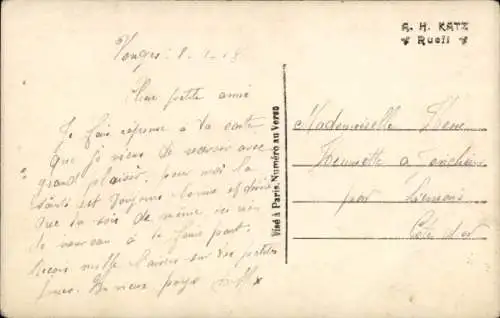 A. H. KATZ
Rueil
Vonges 1-1-18
Chère petite amie
Je fais réponse à ta carte
que je viens de recevoir avec
grand plaisir. pour moi la
santé est toujours bonne et désire
que la
soit de même rien
de nouveau à te faire part.
Reçois mille baisers sur tes petites
joues. Un vieux pays
Visé à Paris. Numéro au Verso
Mademoiselle
à
par
Côte d'or